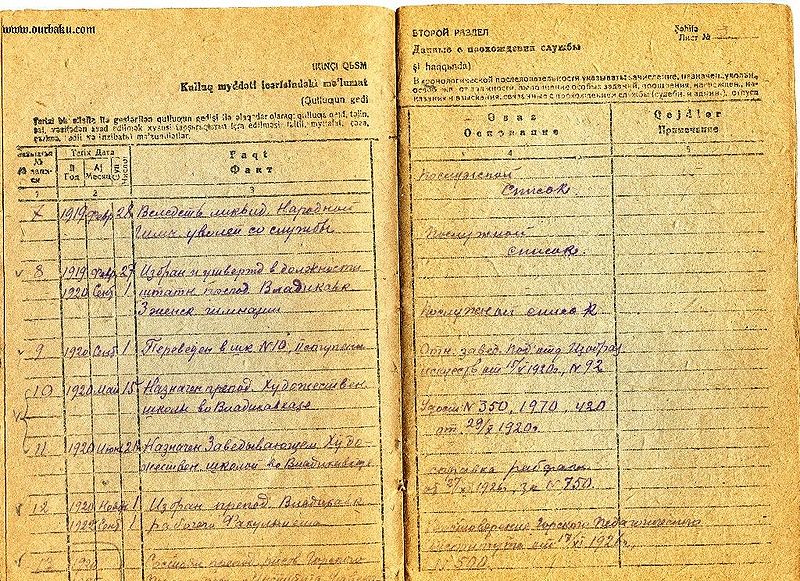 www.ourbaku.com
IKINÇI QЬSM
Kulluq myddəti içərisindəki mə'lumat
(Qulluqun gedi
Tarixi
Факт
Faqt
Tarix Дата
Il Год
Aj Месяц
Gyn Число
1
2
3
7 1919 Февр 28 Вследств ликвид. Народной
Гимн. уволен со службы
8 1919 Февр 27 Избран и утвержд в должности
1920 Сент 1 штатн препод. Владикавк
3 женск гимназии
9 1920 Сент 1 Переведен в шк. N10,
10 1920 Май 15 Назначен препод. Художествен
школы во Владикавказе
11 1920 Июн Назначен Заведывающем Худо
жествен. школой во Владикавказе
12 1920 Нояб 1 Избран препод. Владикавк
1922 Сент 1 рабочего Факультета
13 1920 препод рисов Горского
ВТОРОЙ РАЗДЕЛ
Данные о прохождения службы
Səhifə
Лист №
şi haqqьnda)
В хронологической последовательности указывать: зачисление, назначен, увольн,
особых заданий, поощрения, награжден, на-
казания и взыскания, связанные с прохождением службы (судебн. и админ.), отпуск
Əsas
Основание
Qejdlər
Примечание
4
5
Послужной
Список
Послужной
список.
Послужной список
Отн. завед. Под'отд Изобраз
искусств от 1920г., N 92
Удост N 350, 1970, 420
от 29/X 1920г.
справка рабфака
от 27/XI 1926г. за N 750.
Удостоверение Горского Педагогического
Института от 17/XI 1926г.,
N 500